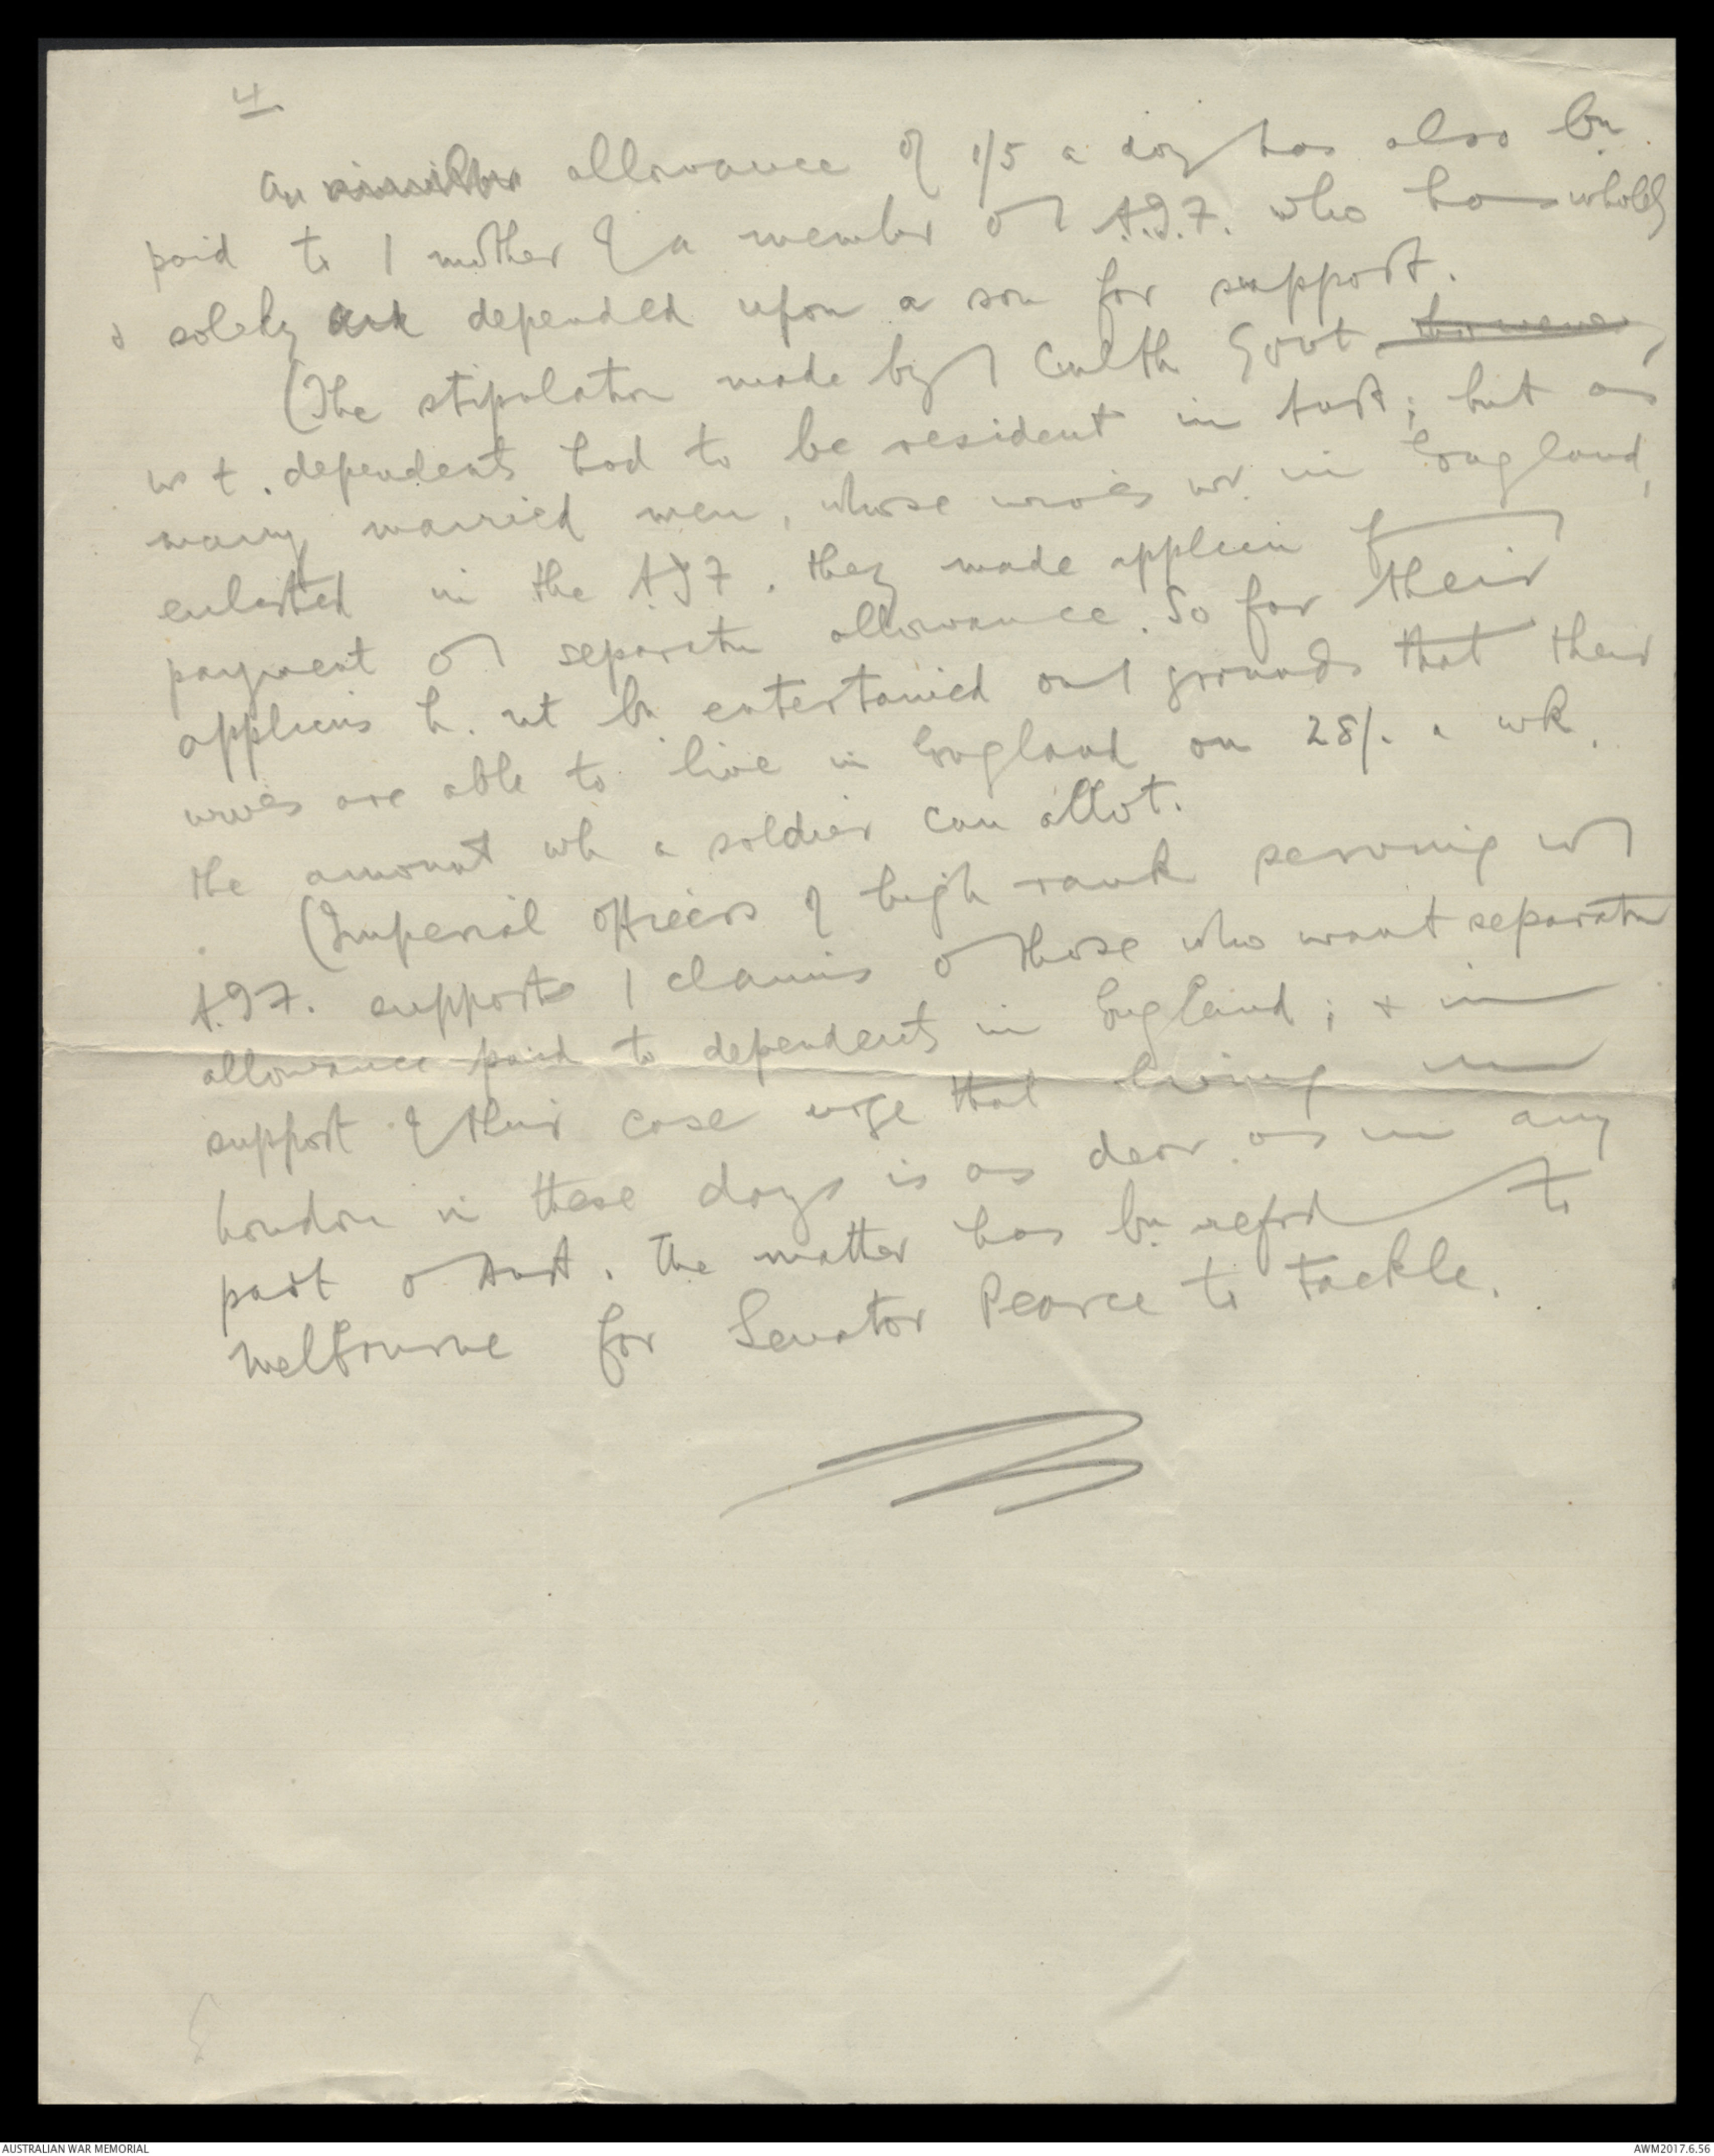 4.
An allowance of 1/5 a day has also bn
paid to / mother of a member o / A.I.F. who has wholly
& solely depended upon a son for support.
(The stipulation made by / Cwlth Govt. however,
ws t. dependents had to be resident in Aust; but as
many married men, whose wives wr. in England,
enlisted in the AIF. they made applicn f
payment o / separatn allowance. So far their
applicns h. nt bn entertained on / grounds that their
wives are able to live in England on 28/- a wk.
the amount wh a soldier can allot.
(Imperial officers of high rank serving w /
A.I.F. supports / claims o those who want separatn
allowance paid to dependents in England; & in
support of their case urge that living in
London in these days is as dear as in any
part o Aust. The matter has bn refrd to
Melbourne for Senator Pearce to tackle.
AUSTRALIAN WAR MEMORIAL
AWM2017.6.56